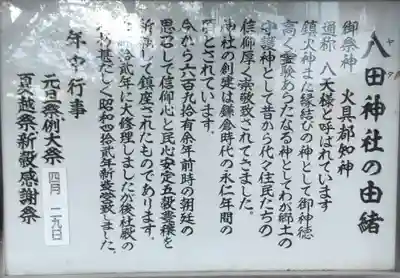 八田神社の由緒
御祭神 火具都知神
通称 八天様と呼ばれています
鎮火神また縁結びの神として御神徳
高く霊験あらたなる神としてわが郷土の
守護神として昔から代々住民たちの
信仰厚く崇敬致されてきました。
神社の創建は鎌倉時代の永仁年間の
とされています。
今から六百九拾有余年前時の朝廷の
思召して信仰心と民心安定五穀豊穣を
祈願して鎮座されたものであります。
拾貮年に大修理しましたが後社殿の
甚だしく昭和四拾貮年新築致しました。
年中行事
元旦祭例大祭 四月二九日
夏越祭新穀感謝祭